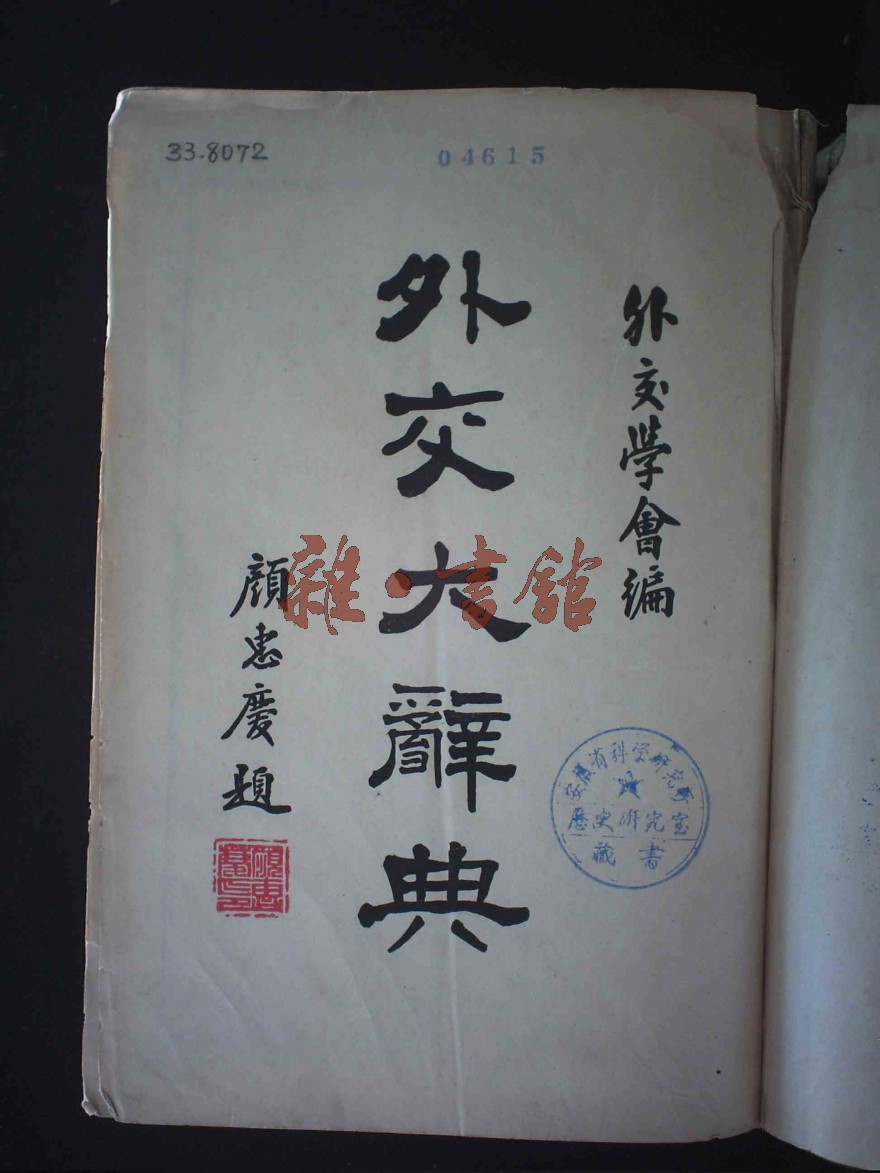 33.8072
04615
外交學會編
外交大辭典
顏惠慶題
顏惠慶印
安徽省科学研究所
歷史研究室
藏書
雜·書館